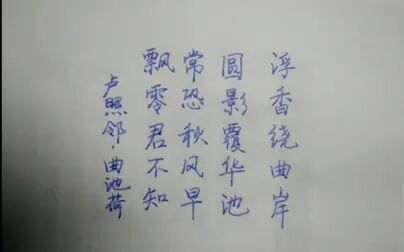 浮香绕曲岸
圆影覆华池
常恐秋风早
飘零君不知
卢照邻·曲池荷